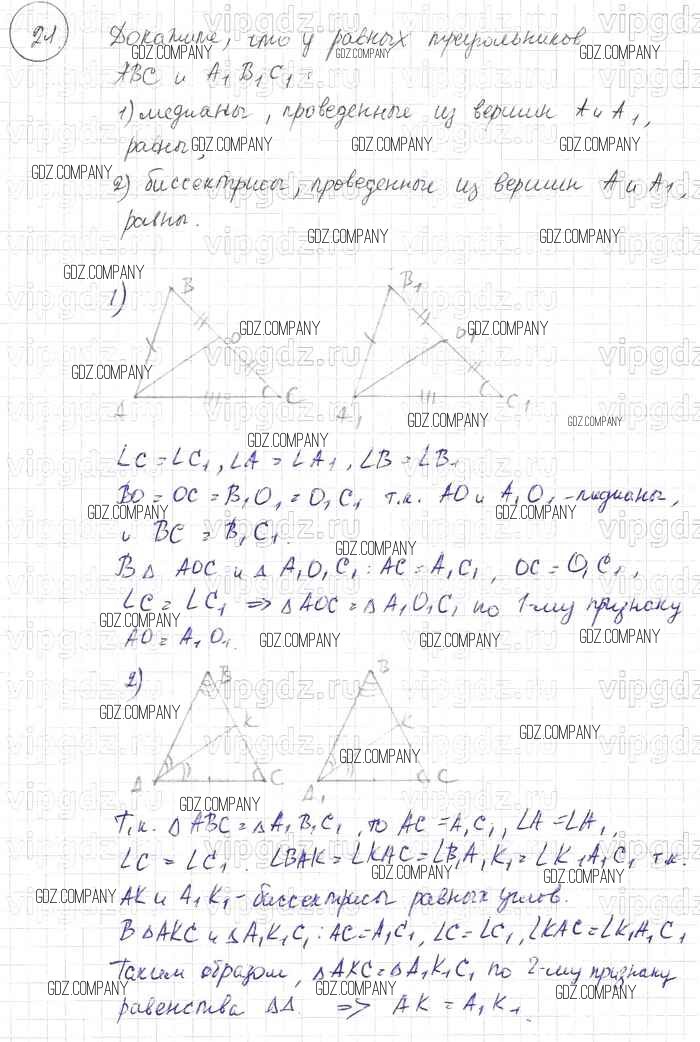 21 Докажите, что у равных треугольников
ABC и A₁B₁C₁:
1) медианы, проведенные из вершин A и A₁,
равны,
2) биссектрисы, проведенные из вершин A и A₁,
равны.
1)
B B₁
O O₁
A C C A₁ C C₁
∠C = ∠C₁, ∠A = ∠A₁, ∠B = ∠B₁
BO = OC = B₁O₁ = O₁C₁ т.к. AO и A₁O₁ - медианы,
и BC = B₁C₁.
В △ AOC и △ A₁O₁C₁: AC = A₁C₁, OC = O₁C₁,
∠C = ∠C₁ => △AOC = △A₁O₁C₁ по 1-му признаку
AO = A₁O₁.
2)
B B
K K
A C A₁ C
Т.к. △ABC = △A₁B₁C₁, то AC = A₁C₁, ∠A = ∠A₁,
∠C = ∠C₁. ∠BAK = ∠KAC = ∠B₁A₁K₁ = ∠K₁A₁C₁ т.к.
AK и A₁K₁ - биссектрисы равных углов.
В △AKC и △A₁K₁C₁: AC = A₁C₁, ∠C = ∠C₁, ∠KAC = ∠K₁A₁C₁
Таким образом, △AKC = △A₁K₁C₁ по 2-му признаку
равенства △△. => AK = A₁K₁.
GDZ.COMPANY
vipgdz.ru